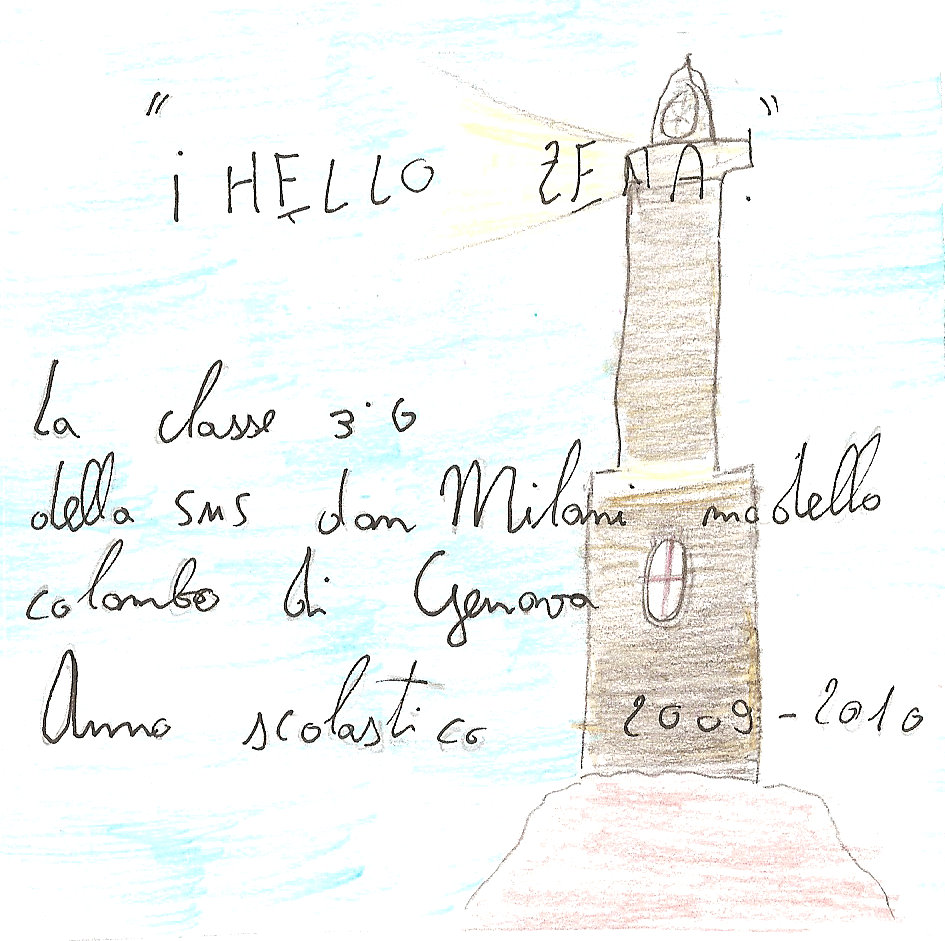 "¡HELLO ZENA!"
La classe 3°G
della SMS don Milani modello
colombo di Genova
Anno scolastico 2009-2010